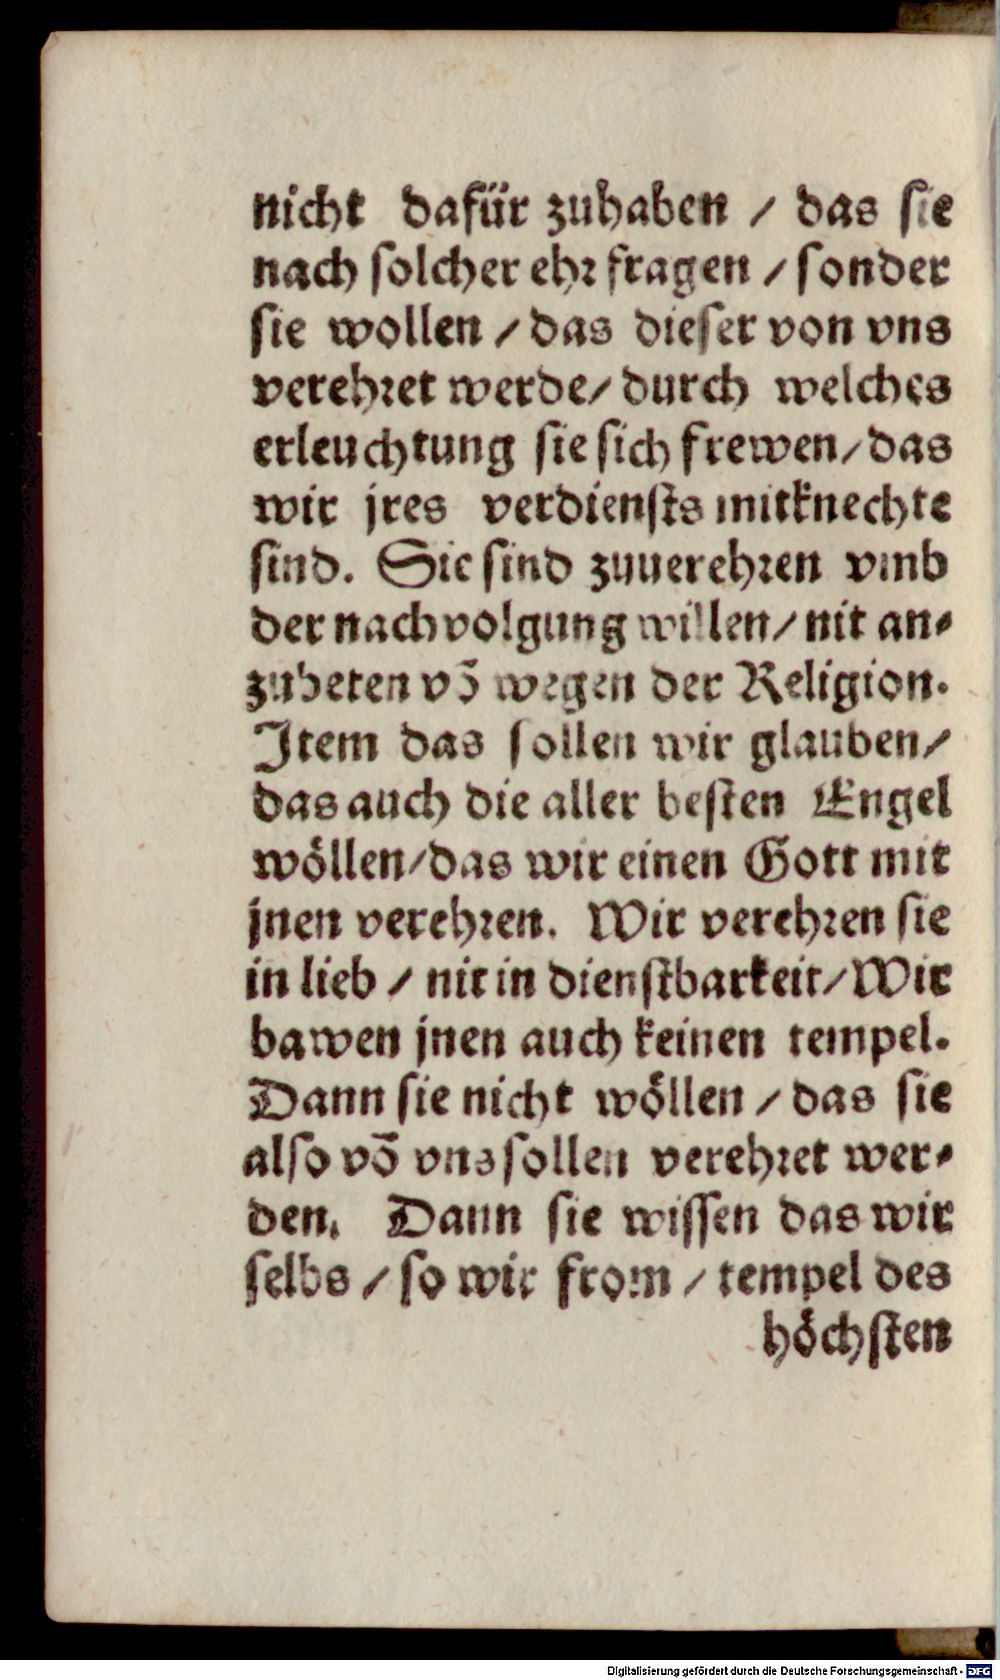 nicht dafür zuhaben / das sie
nach solcher ehr fragen / sonder
sie wollen / das dieser von vns
verehret werde / durch welches
erleuchtung sie sich frewen / das
wir jres verdiensts mitknechte
sind. Sie sind zuuerehren vmb
der nachvolgung willen / nit an⸗
zubeten võ wegen der Religion.
Item das sollen wir glauben /
das auch die aller besten Engel
wöllen / das wir einen Gott mit
jnen verehren. Wir verehren sie
in lieb / nit in dienstbarkeit / Wir
bawen jnen auch keinen tempel.
Dann sie nicht wöllen / das sie
also võ vns sollen verehret wer⸗
den. Dann sie wissen das wir
selbs / so wir from / tempel des
höchsten
Digitalisierung gefördert durch die Deutsche Forschungsgemeinschaft - DFG